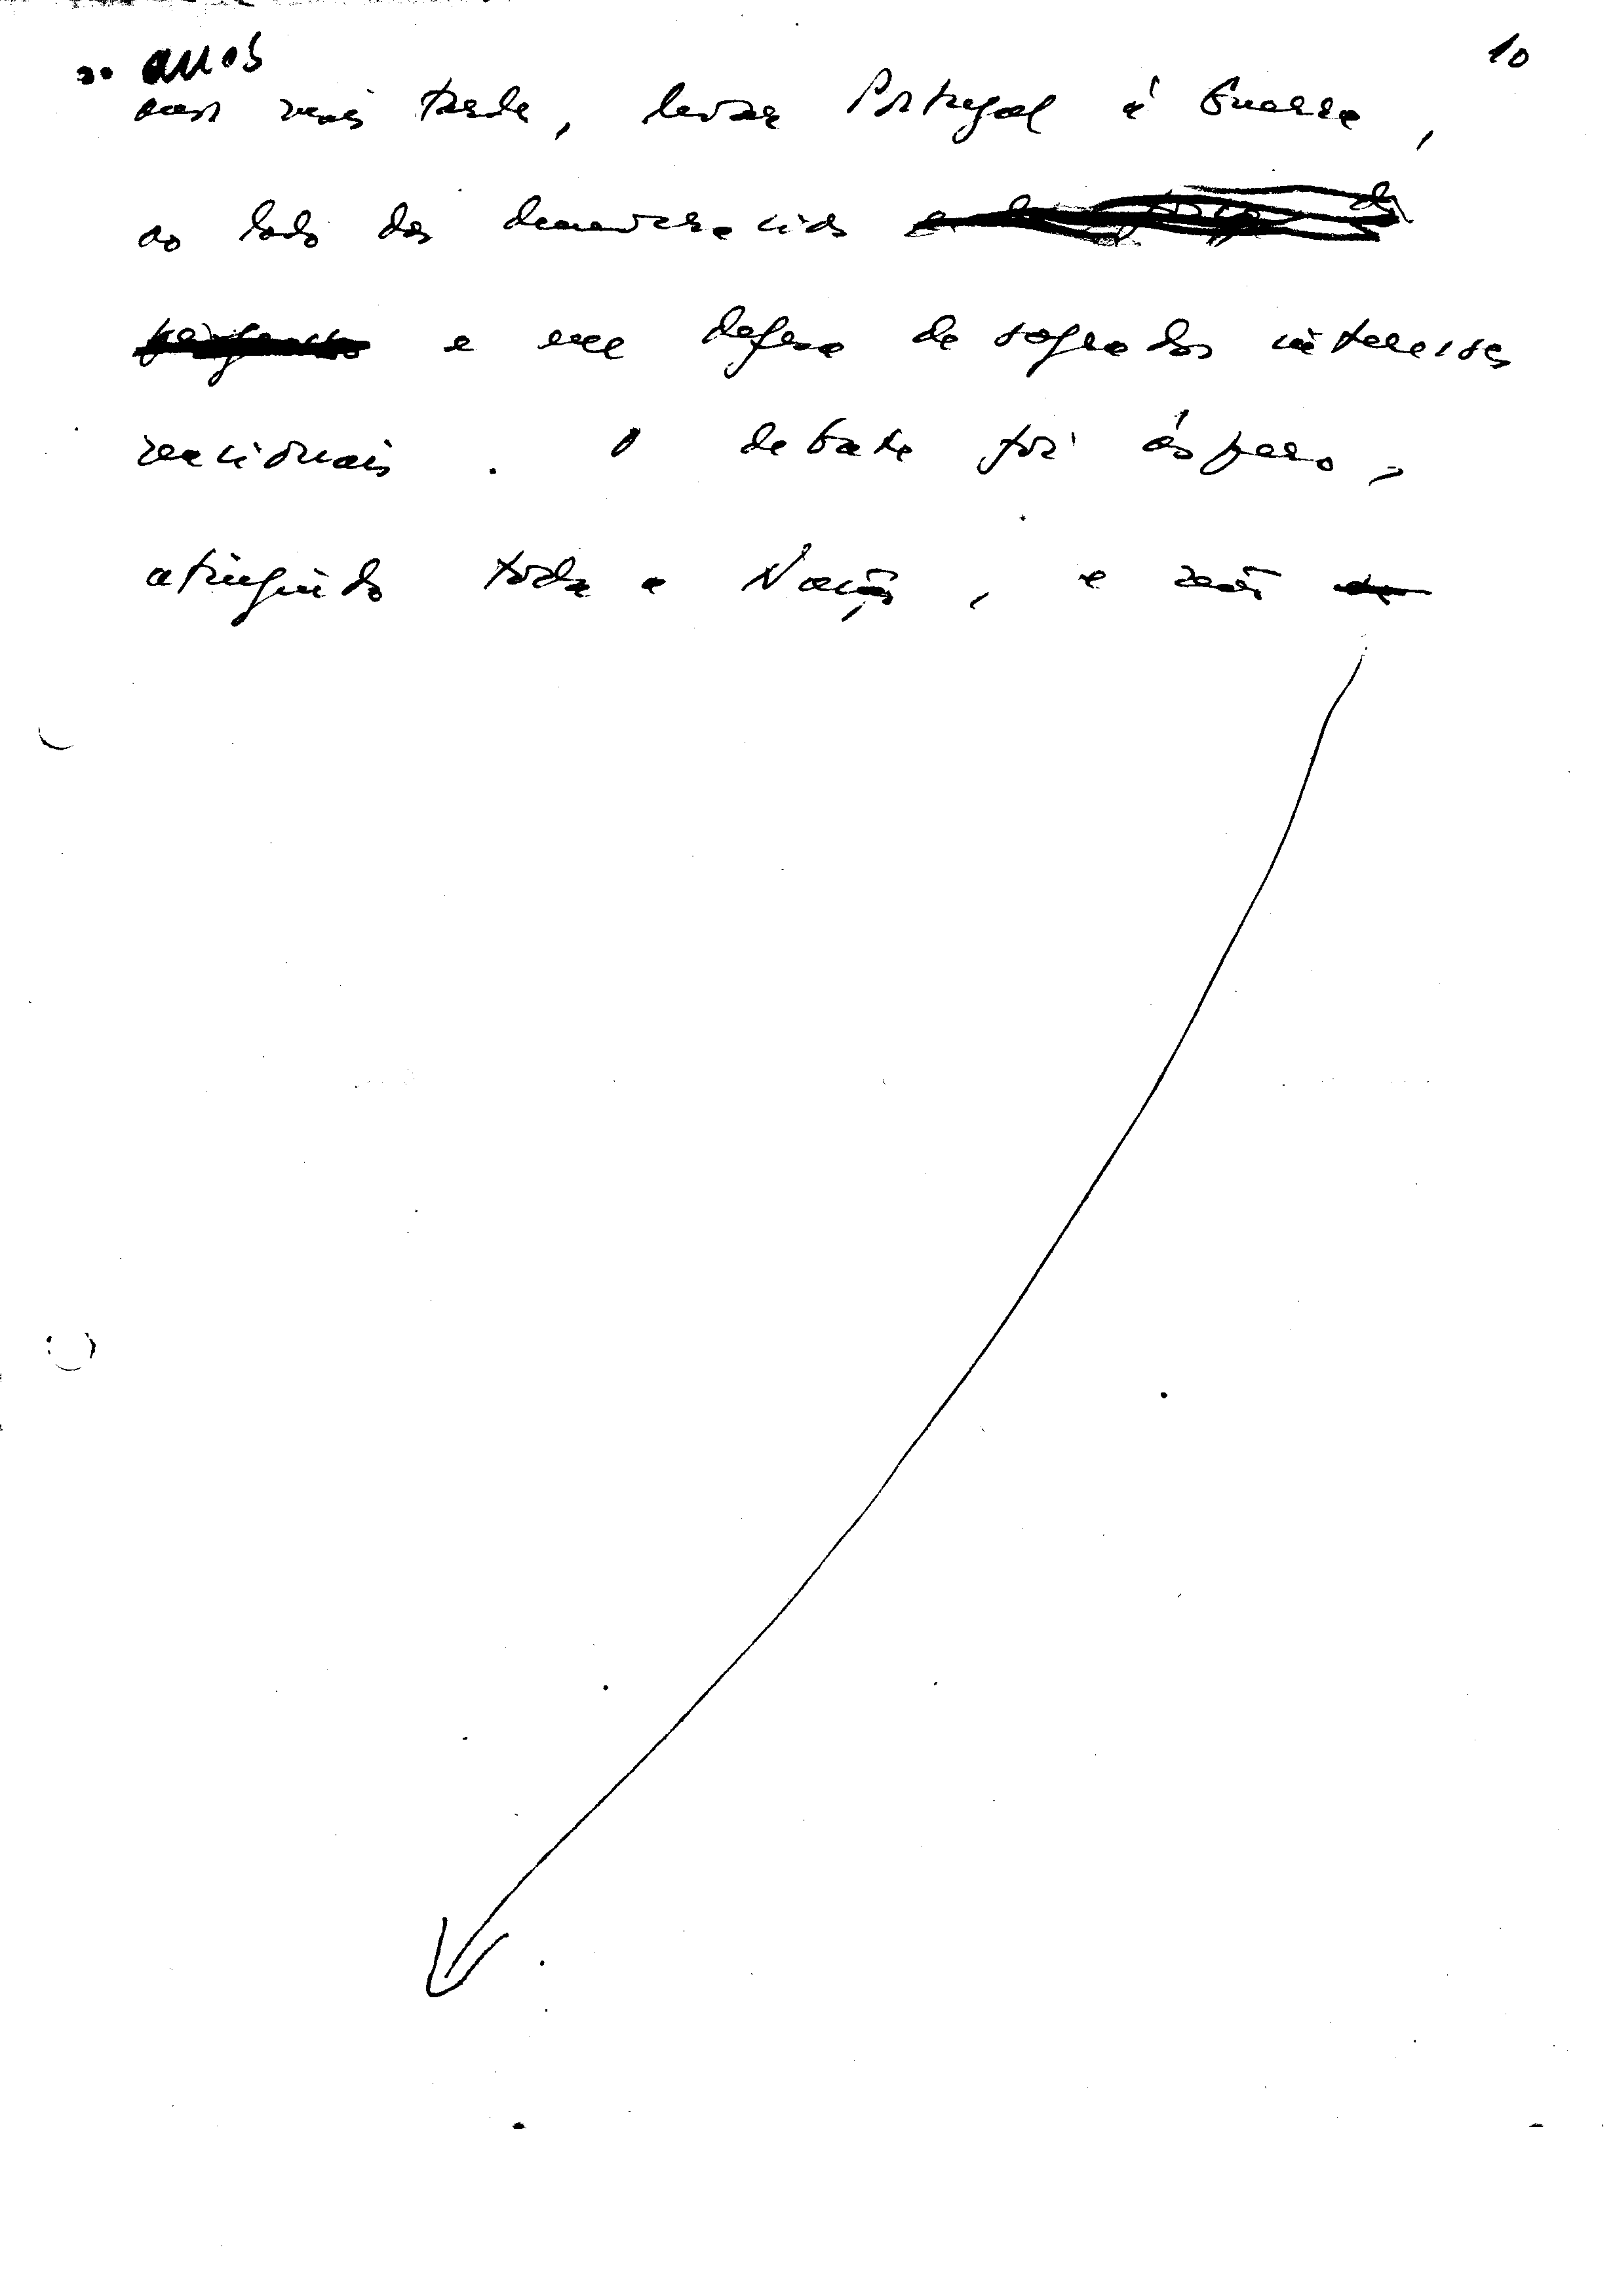 10
anos
anos mais tarde, levar Portugal à Guerra,
ao lado das democracias
e em defesa de sagrados interesses
nacionais. O debate foi áspero,
atingindo toda a Nação, e não